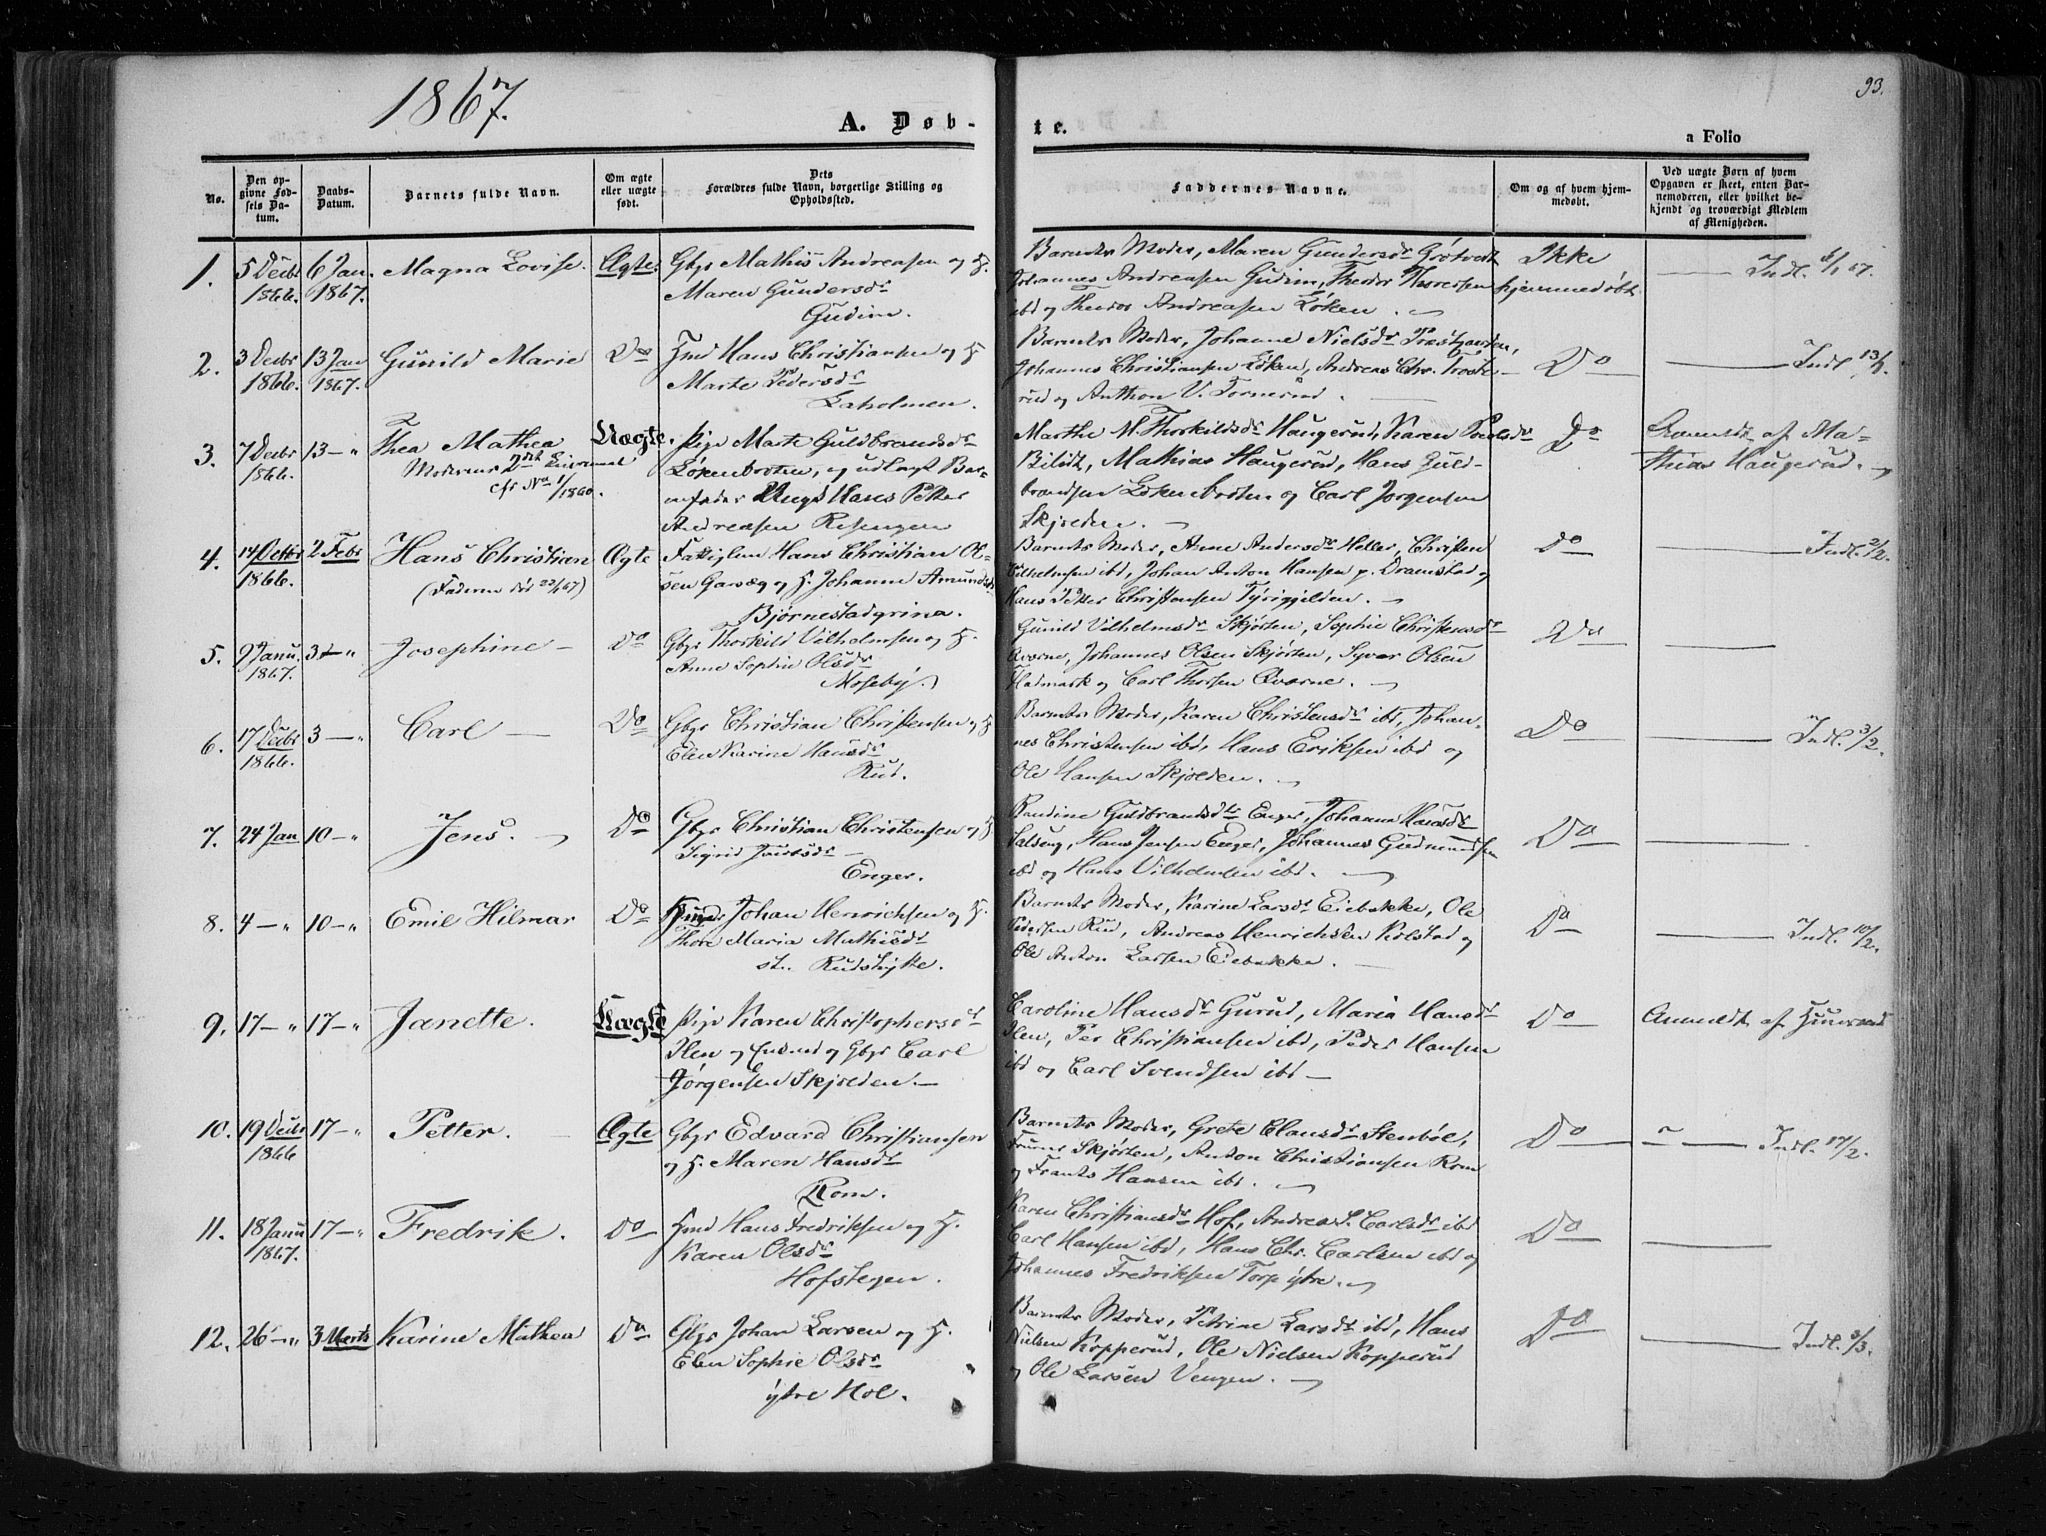 1867.
93.
A. Døb-
te.
a Folio
No.
Den op-
givne Fød-
sels Da-
tum.
Daabs-
Datum.
Barnets fulde Navn.
Om ægte
eller uægte
født.
Dets
Forældres fulde Navn, borgerlige Stilling og
Opholdssted.
Faddernes Navne.
Om og af hvem hjem-
medøbt.
Ved uægte Børn af hvem
Opgaven er skeet, enten Bar-
nemoderen, eller hvilket be-
kjendt og troværdigt Medlem
af Menigheden.
1. 5 Decbr 1866. 6 Jan. 1867. Magna Lovise. Ægte.
Gbr Mathis Andreasen og H.
Maren Gundersdr
Gudim.
Barnets Moder, Maren Gundersdr Grøtvedt
Johannes Andreasen Gudim, Theodor Thoresen
ibd og Theodor Andreasen Løken.
Ikke
hjemmedøbt
Indl. 6/1 67.
2. 3 Decbr 1866. 13 Jan 1867. Gunild Marie Do
Hmd Hans Christiansen og H
Marte Pedersdr
Laholmen.
Barnets Moder, Johanne Nielsdr
Johannes Christiansen Løken, Andreas Chr. Troste-
rud og Anthon V. Tornerud.
Do
Indl 13/1.
3. 7 Decbr 1866. 13 — " Thea Mathea
Moderens 2det Leiermaal
cfr No 1/1860.
Uægte.
Pige Marte Guldbrandsdr
Løkenbroten, og udlagt Bar-
nefader Ungk Hans Petter
Andreasen Risengen
Marthe M. Thorkildsdr Haugerud, Karen Povlsdr
Bilidt, Mathias Haugerud, Hans Guld-
brandsen Løkenbroten og Carl Jørgensen
Skjolden.
Do
Anmeldt af Ma-
thias Haugerud.
4. 14 Octbr 1866. 2 Febr Hans Christian
(Faderen død 22/1 67)
Ægte
Fattiglem Hans Christian Ol-
sen Garsæg og H. Johanne Amundsdr
Bjørnestadgrina.
Barnets Moder, Anne Andersdr Heller, Christen
Vilhelmsen ibd, Johan Anton Hansen p. Dramstad og
Hans Petter Christensen Tyriggilden.
Do
Indl. 2/2.
5. 9 Janu. 1867. 3 — " Josephine — Do
Gbr Thorkild Vilhelmsen og H.
Anne Sophie Olsdr
Moseby.
Gunild Vilhelmsdr Skjørten, Sophie Christensdr
Qværne, Johannes Olsen Skjørten, Syver Olsen
Hadmark og Carl Thorsen Qværne.
Do
6. 17 Decbr 1866. 3 — " Carl — Do
Gbr Christian Christensen og H
Elen Karine Hansdr
Rud.
Barnets Moder, Karen Christensdr ibd, Johan-
nes Christensen ibd, Hans Eriksen ibd og
Ole Hansen Skjolden.
Do
Indl. 3/2.
7. 24 Jan 10 — " Jens. Do
Gbr Christian Christensen og H
Sigrid
Enger.
Guldbrandsdtr Enger, Johanna Hansdr
Hans Jensen Enger, Johannes Gudmundsen
ibd og Hans Vilhelmsen ibd.
Do
8. 4 — " 10 — " Emil Hilmar Do
Johan Henrichsen og H.
Thore Maria Mathisdr
st. Rudshytte.
Barnets Moder, Karine Larsdr Eiebakke, Ole
Pedersen Rud, Andreas Henrichsen Kolstad og
Ole Anton Larsen Eiebakke.
Do
Indl. 10/2.
9. 17 — " 17 — " Janette. Uægte
Pige Karen Christophersdr
Ilen og Gbr Carl
Jørgensen Skjolden. —
Caroline Hansdr Gurud, Maria Hansdr
Ilen, Per Christiansen ibd, Peder Hansen
ibd og Carl Svendsen ibd —
Do
Anmeldt af
10. 19 Decbr 1866 17 — " Petter. Ægte
Gbr Edvard Christiansen
og H. Maren Hansdr
Rom.
Barnets Moder, Grete Clausdr Stenbøl,
Skjørten, Anton Christiansen Rom
og Frants Hansen ibd.
Do
Indl. 17/2.
11. 18 Janu 1867. 17 — " Fredrik. Do
Hmd Hans Fredriksen og H.
Karen Olsdr
Hofstegen.
Karen Christiansdr Hof, Andrea S. Carlsdr ibd
Carl Hansen ibd, Hans Chr. Carlsen ibd og
Johannes Fredriksen Torp ytre.
Do
12. 26 — " 3 Marts Karine Mathea Do
Gbr Johan Larsen og H.
Elen Sophie Olsdr
ytre Hol.
Barnets Moder, Petrine Larsdr ibd, Hans
Nielsen Kopperud, Ole Nielsen Kopperud
og Ole Larsen Vengen.
Do
Indl. 3/3.